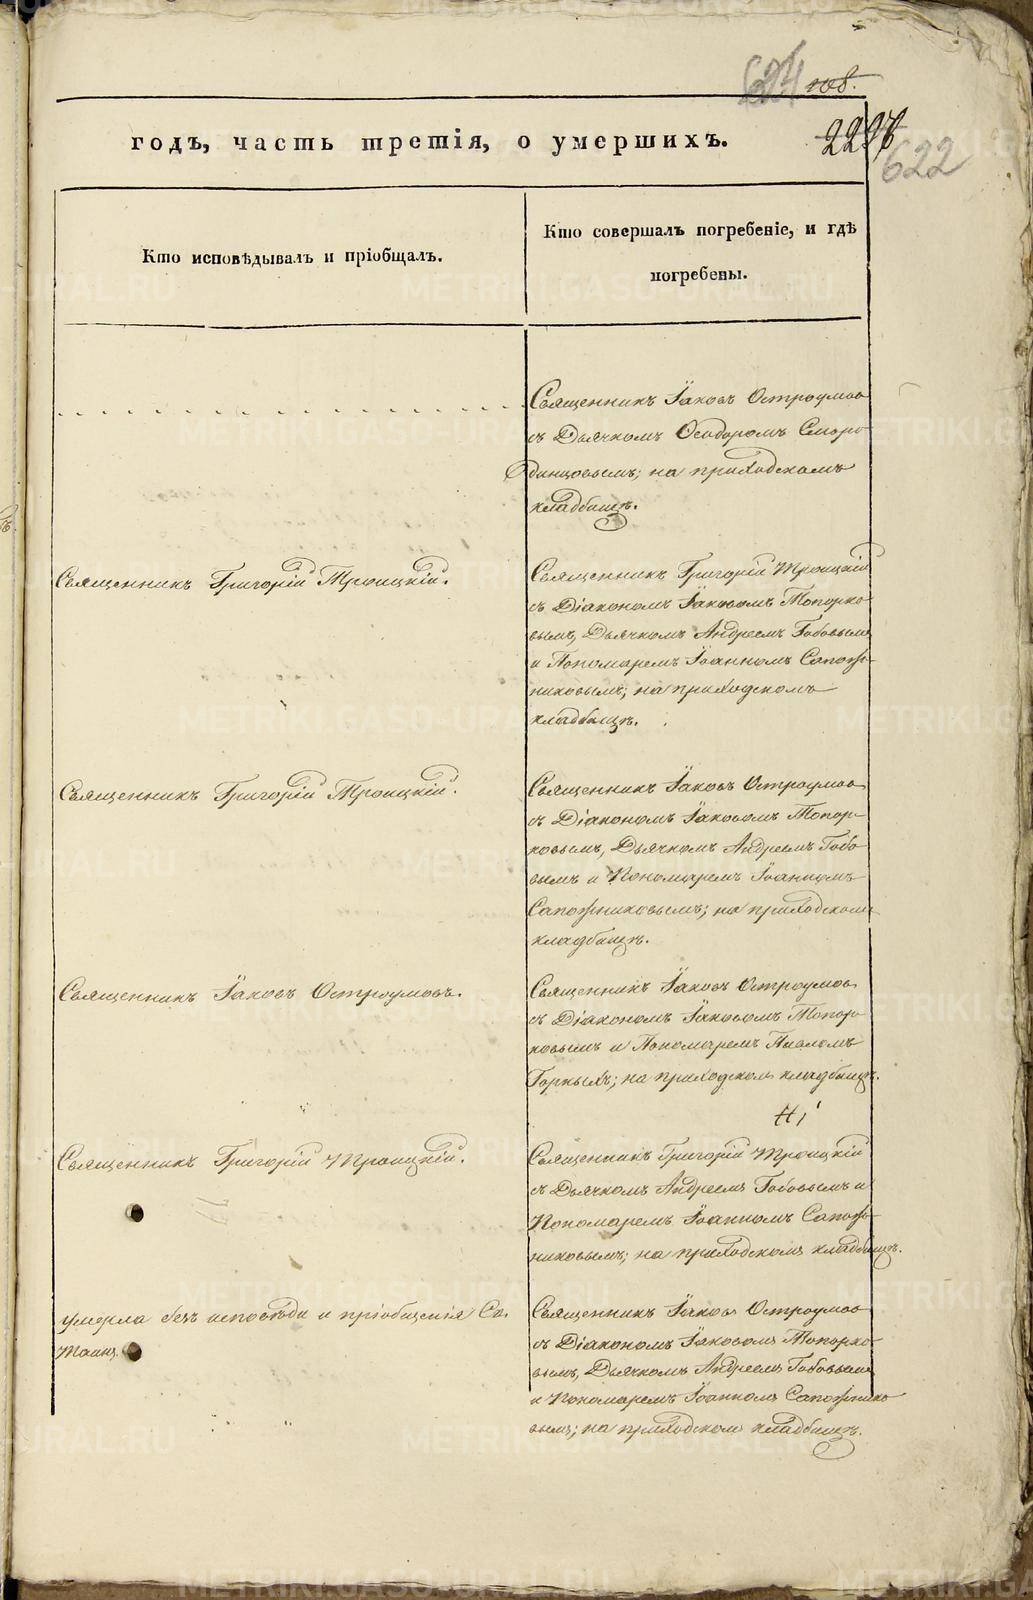 708.
2298
622
годъ, часть третія, о умершихъ.
Кто исповѣдывалъ и пріобщалъ.
Кто совершалъ погребеніе, и гдѣ
погребены.
Священникъ Іаковъ Остроумовъ
съ Дьячкомъ Ѳеодоромъ Сморо-
динцовымъ; на приходскомъ
кладбищѣ.
Священникъ Григорій Троицкій.
Священникъ Григорій Троицкій
съ Діакономъ Іаковомъ Топорко-
вымъ, Дьячкомъ Андреемъ Бобовымъ
и Пономаремъ Іоанномъ Сапож-
никовымъ; на приходскомъ
кладбищѣ.
Священникъ Григорій Троицкій.
Священникъ Іаковъ Остроумовъ
съ Діакономъ Іаковомъ Топор-
ковымъ, Дьячкомъ Андреемъ Бобо-
вымъ и Пономаремъ Іоанномъ
Сапожниковымъ; на приходскомъ
кладбищѣ.
Священникъ Іаковъ Остроумовъ.
Священникъ Іаковъ Остроумовъ
съ Діакономъ Іаковомъ Топор-
ковымъ и Пономаремъ Павломъ
Горныхъ; на приходскомъ кладбищѣ.
Священникъ Григорій Троицкій.
Священникъ Григорій Троицкій
съ Дьячкомъ Андреемъ Бобовымъ и
Пономаремъ Іоанномъ Сапож-
никовымъ; на приходскомъ кладбищѣ.
умерла безъ исповѣди и пріобщенія Св.
Таинъ.
Священникъ Іаковъ Остроумовъ
съ Діакономъ Іаковомъ Топорко-
вымъ, Дьячкомъ Андреемъ Бобовымъ
и Пономаремъ Іоанномъ Сапожнико-
вымъ; на приходскомъ кладбищѣ.
METRIKI.GASO-URAL.RU